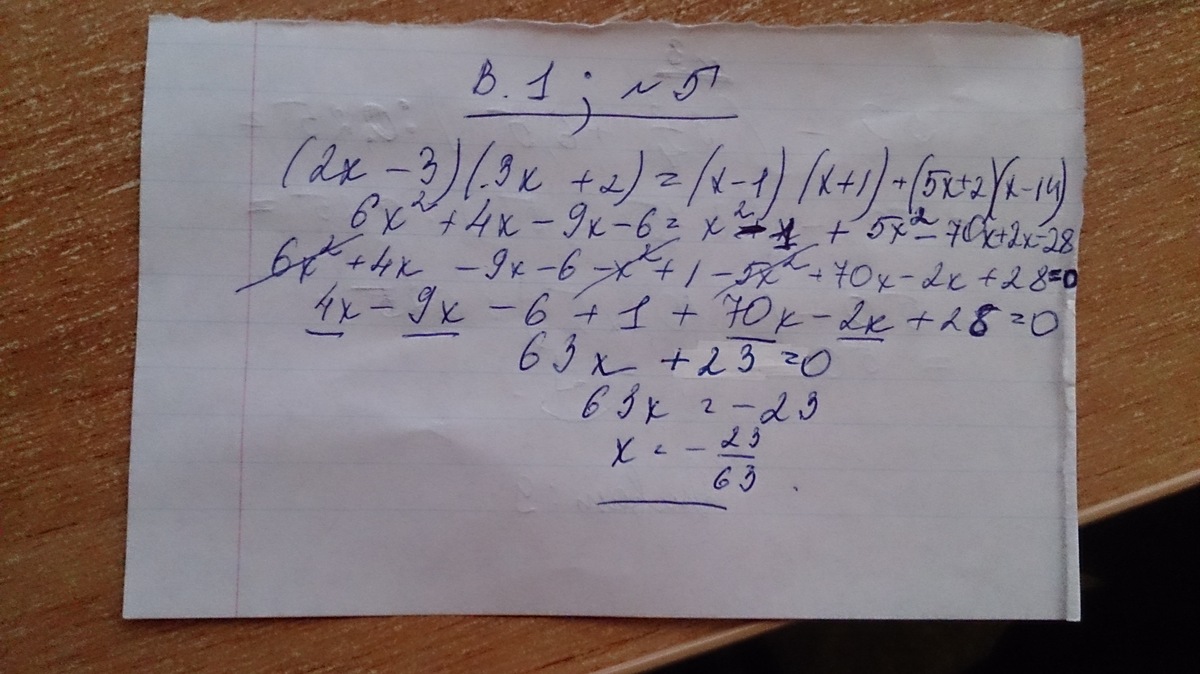 В. 1 ; № 5
(2x - 3)(3x + 2) = (x-1) (x+1) + (5x+2)(x-14)
6x² + 4x - 9x - 6 = x² - 1 + 5x² - 70x+2x-28
6x² + 4x - 9x - 6 - x² + 1 - 5x² + 70x - 2x + 28 = 0
4x - 9x - 6 + 1 + 70x - 2x + 28 = 0
63x + 23 = 0
63x = - 23
x = - 23/63